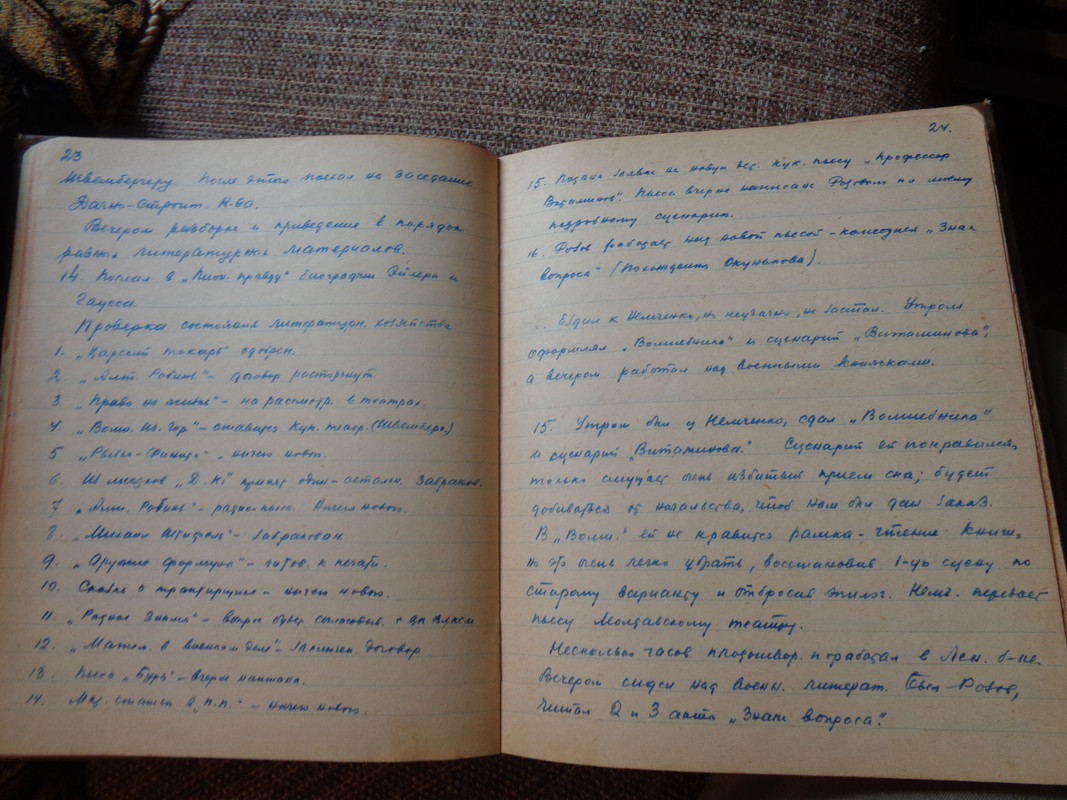 23
Швембергеру. После этого поехал на заседание
Дачно-строит. к-ва.
Вечером разборка и приведение в порядок
разных литературных материалов.
14. Послал в „Пион. правду" биографии Эйлера и
Гаусса.
Проверка состояния литературн. хозяйства
1. „Царский токарь" одобрен.
2. „Алт. Робинз" – договор расторгнут.
3. „Право на жизнь" – на рассмотр. в театрах.
4. „Волш. Из. гор" – ставится Кук. театр. (Швемберг.)
5 „Рыбка-Финита" – ничего нового.
6. Из рассказов „Д. К." принят один – остальн. забраков.
7 „Алт. Робинз" – радиопьеса. Ничего нового.
8. „Михаил Штифель" – забракован
9. „Другие формулы" – готов. к печати.
10. Статья о транспирации – ничего нового.
11. „Родное Знамя" – вопрос будет согласовыв. с ЦК ВЛКСМ
12. „Матем. в военном деле" – заключен договор
13. Пьеса „Бурц" – вчерне написана.
14. Мат. статья в „П.П." – ничего нового.
24.
15. Подана заявка на новую вес. кук. пьесу „Профессор
Витаминов". Пьеса вчерне написана Розовом по моему
подробному сценарию.
16. Розов работает над новой пьесой-комедией „Знак
вопроса" (Похождения Окунькова).
Ездил к Немченко, но неудачно, не застал. Утром
оформлял „Волшебника" и сценарий „Витаминова",
а вечером работал над военными книжками.
15. Утром был у Немченко, сдал „Волшебника"
и сценарий „Витаминова". Сценарий ей понравился,
только смущает очень избитый прием сна; будет
добиваться от начальства, чтоб нам был дан заказ.
В „Волш." ей не нравится рамка – чтение книги,
но это очень легко убрать, восстановив 1-ую сцену по
старому варианту и отбросив эпилог. Немч. передает
пьесу Молдавскому театру.
Несколько часов плодотвор. поработал в Лен. б-ке.
Вечером сидел над военн. литерат. Был Розов,
читал 2 и 3 акты „Знак вопроса".